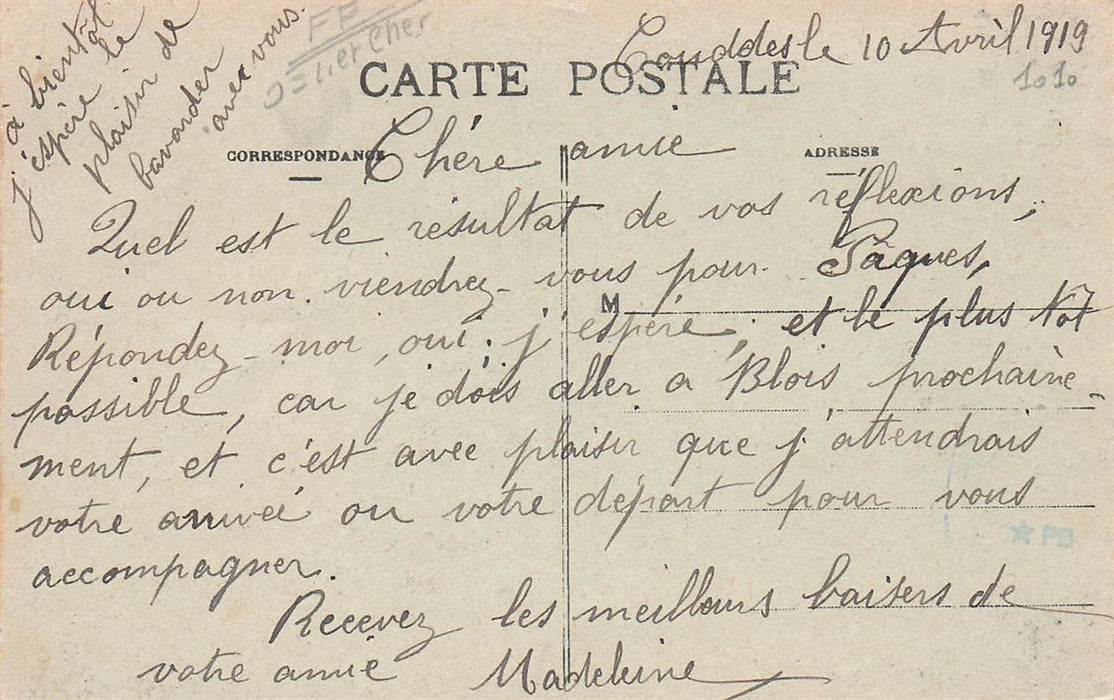 à bientôt
j'espère le
plaisir de
bavarder
avec vous.
Couddes le 10 Avril 1919
1010
CARTE POSTALE
CORRESPONDANCE
ADRESSE
Chére amie
Quel est le résultat de vos réflexions,
oui ou non. viendrez-vous pour Pâques,
M
Répondez-moi, oui. j'espére, et le plus tôt
possible, car je dois aller a Blois prochaine-
ment, et c'est avec plaisir que j'attendrais
votre arrivée ou votre départ pour vous
accompagner.
Recevez les meilleurs baisers de
votre amie Madeleine
PB